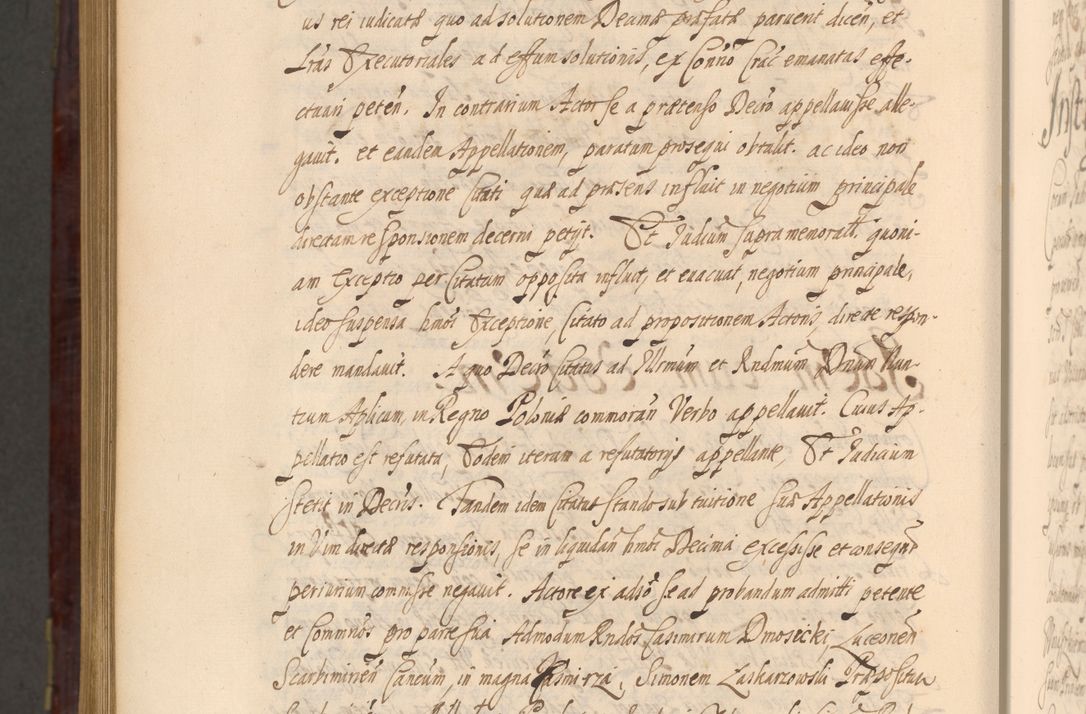 us rei iudicatæ quo ad solutionem Decimæ præfatæ paruerit dicen, et
Lras Executoriales ad effum solutionis, ex Conrio Crac emanatas effe-
ctuari peten. In contrarium Actor se a prætenso Decro appellauisse alle-
gauit. et eandem Appellationem, paratum prosequi obtulit. ac ideo non
obstante exceptione Citati quæ ad præsens influit in negotium principale
directam responsionem decerni petijt. Et Iudicium supra memoratt. quoni-
am Exceptio per Citatum opposita influit, et euacuat negotium principale,
ideo suspensa hmoi Exceptione, Citato ad propositionem Actoris, directe respon-
dere mandauit. A quo Decro Citatus ad Illrmum et Rndmum Dnum Nun-
tium Aplicum, in Regno Poloniæ commoran Verbo appellauit. Cuius Ap-
pellatio est refutata, Eodem iterum a refutatorijs appellante, Et Iudicium
stetit in Decris. Tandem idem Citatus stando sub tuitione suæ Appellationis
in Vim directæ responsionis, se in liquidan hmoi Decima excessisse et consegnr
periurium commisse negauit. Actore ex adso se ad probandum admitti petente
et Commrios pro parte sui Admodum Rndos Casimirum Dmosicki, Luceorien
Scarbimirien Cancum, in magna Kasmirza, Simonem Laskarzowski Præpositum